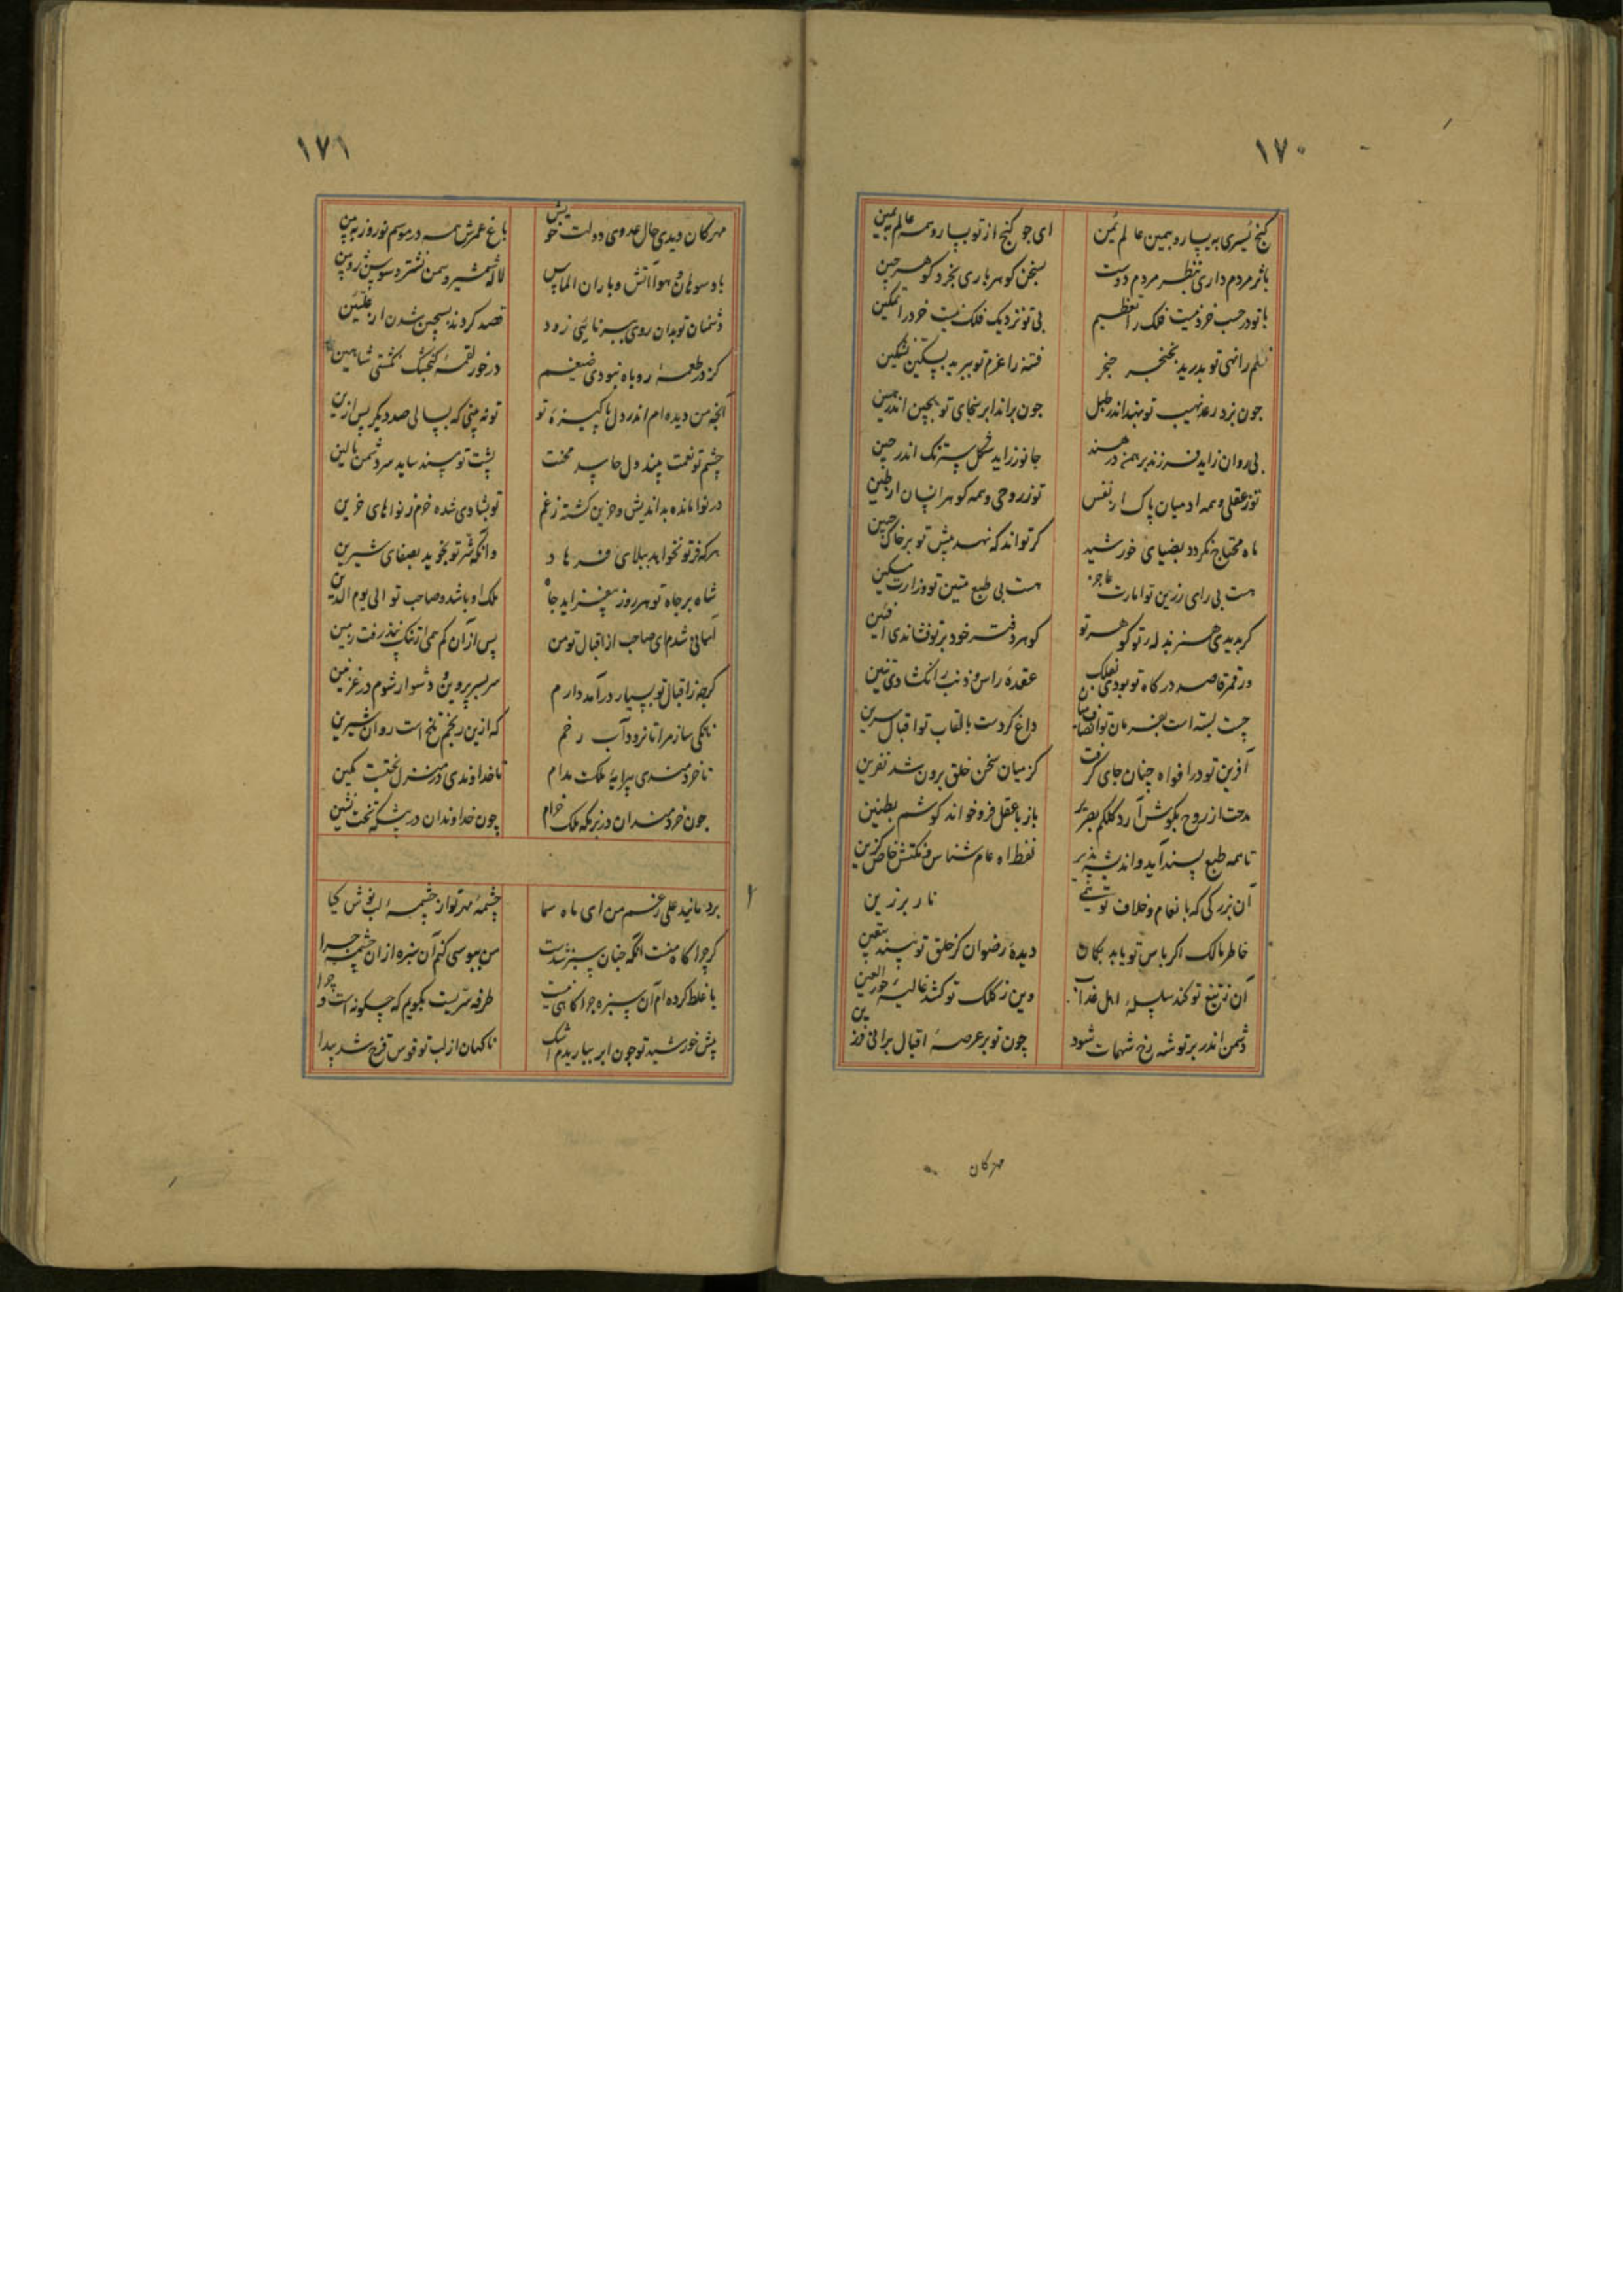 ۱۷۰
کنج یسری به یسار و بهمین عالم یمن ای جو کنج از تو یسار و همه عالم یمین
باثر مردم داری بنظر مردم دوست بسخن کوهر باری بخرد کوهر چین
با تو در حسب خرد نیست فلک را تعظیم بی تو نزدیک فلک نیست خرد را تمکین
ظلم را نهی تو بدرید بخنجر حنجر فتنه را عزم تو ببرید بسکین
جون بزد رعد نهیب تو بهند اندر طبل جون براند ابر سخای تو بچین اندر
بی روان زاید فرزند برهمن در هند جانور زاید شکل سترنک اندر چین
تو ز عقلی و همه ادمیان پاک از نفس تو ز روحی و همه کوهر انسان از طین
ماه محتاج نکردد بضیای خورشید کر تواند که نهد پیش تو بر خاک جبین
هست بی رای رزین تو امارت عاجز هست بی طبع متین تو وزارت مسکین
کر بدیدی هنر کوهر تو کوهر دفتر خود بر تو فشاندی
ور قمر قاصد درکاه تو بودی بفلک عقدهٔ راس و ذنب را نکشادی تنین
چست بسته است بفرمان تو داغ کردست بالقاب تو اقبال سرین
آفرین تو در افواه چنان جای کرفت کز میان سخن خلق برون شد نفرین
مدحت از روح بکوش آرد کلکم بصریر باز با عقل فرو خواند کوشم بطنین
تا همه طبع پسند آید و اندیشه پذیر لفظ عام شناس و نکتش خاص کزین
آن بزرکی که با نعام و خلاف تو
خاطر مالک اکر باس تو یابد دیدهٔ رضوان کز خلق تو بیند
آن ز تیغ تو کند سلسلهٔ اهل عذاب وین ز کلک تو کشد غالیهٔ حور العین
دشمن اندر بر تو شه رخ شهمات شود چون تو بر عرصهٔ اقبال برانی فرزین
مهرکان
۱۷۱
مهرکان دیدی حال عدوی دولت خویش باغ عمرش همه در موسم نوروز ببین
باد سوهان و هوا آتش و باران الماس لاله شمشیر و سمن نشتر و سوسن زوبین
دشمنان تو بدان روی زود قصد کردند بسجین شدن از علیین
کز در طعمهٔ روباه نبودی ضیغم در خور لقمهٔ کنجشک نکشتی شاهین
آنچه من دیده ام اندر دل پاکیزهٔ تو تو نه بینی که بسالی صد دیکر پس ازین
چشم تو نعمت بیند دل حاسد محنت پشت تو مسند ساید سر دشمن بالین
در نوا مانده بداندیش و حزین کشته ز غم تو بشادی شده خرم ز نواهای حزین
هرکه فر تو نخواهد ببلای فرهاد وانکه شر تو بجوید بصفای شیرین
شاه بر جاه تو هر روز بیفزاید جاه ملک او باشد و صاحب تو الی یوم الدین
آسمانی شدم ای صاحب از اقبال تو من پس از آن کم زمین
کرچه ز اقبال تو بسیار درآمد دارم سر بسر بیرون دشوار شوم در غزنین
نانکی ساز مرا تا نرود آب رخم که ازین رنجم تلخ است روان شیرین
تا خردمندی پیرایهٔ ملکت مدام تا خداوندی در منزل بختت مکین
جون خردمندان در بزمکه ملک خرام چون خداوندان در بیشکه تخت نشین
برد مانید علی رغم من ای ماه سما چشمهٔ مهر تو از چشمهٔ لب نوش کیا
کر چراکاه منت انکه چنان سبز شدست من ببوسی کنم آن سبزه از ان چشمه چرا
یا غلط کرده ام آن سبزه چراکاهی نیست طرفه سریست بکویم که چکونه است و چرا
پیش خورشید تو جون ابر بباریدم اشک ناکهان از لب تو قوس قزح شد پیدا